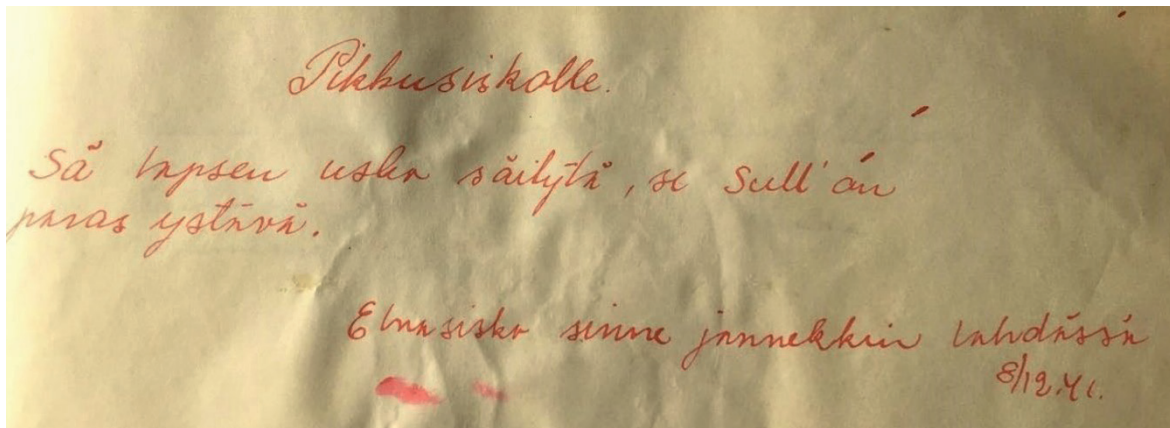 Pikkusiskolle.
Sä lapsen usko säilytä, se Sull' on
paras ystävä.
Elnasisko sinne jannekkin Lahdässä
8/12.41.